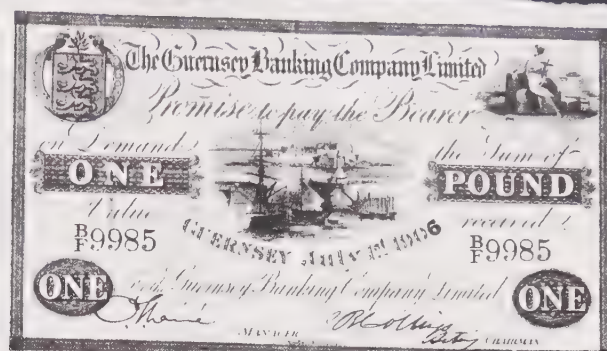 The Guernsey Banking Company Limited
Promise to pay the Bearer
on Demand the Sum of
ONE POUND
Value received
B/F 9985 B/F 9985
GUERNSEY, July 1st 1906
ONE For the Guernsey Banking Company Limited ONE
MANAGER CHAIRMAN